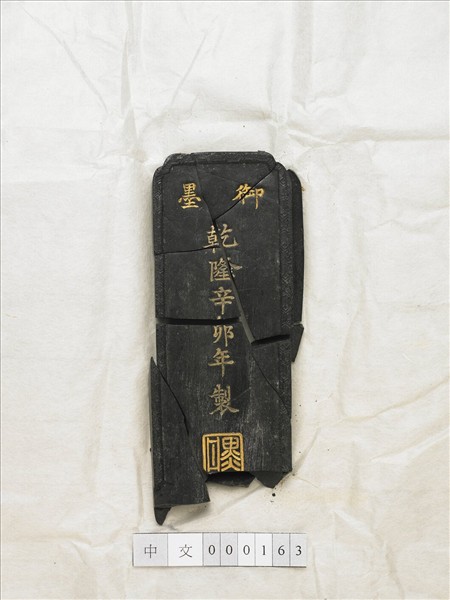 御墨
乾隆辛卯年製
中文000163